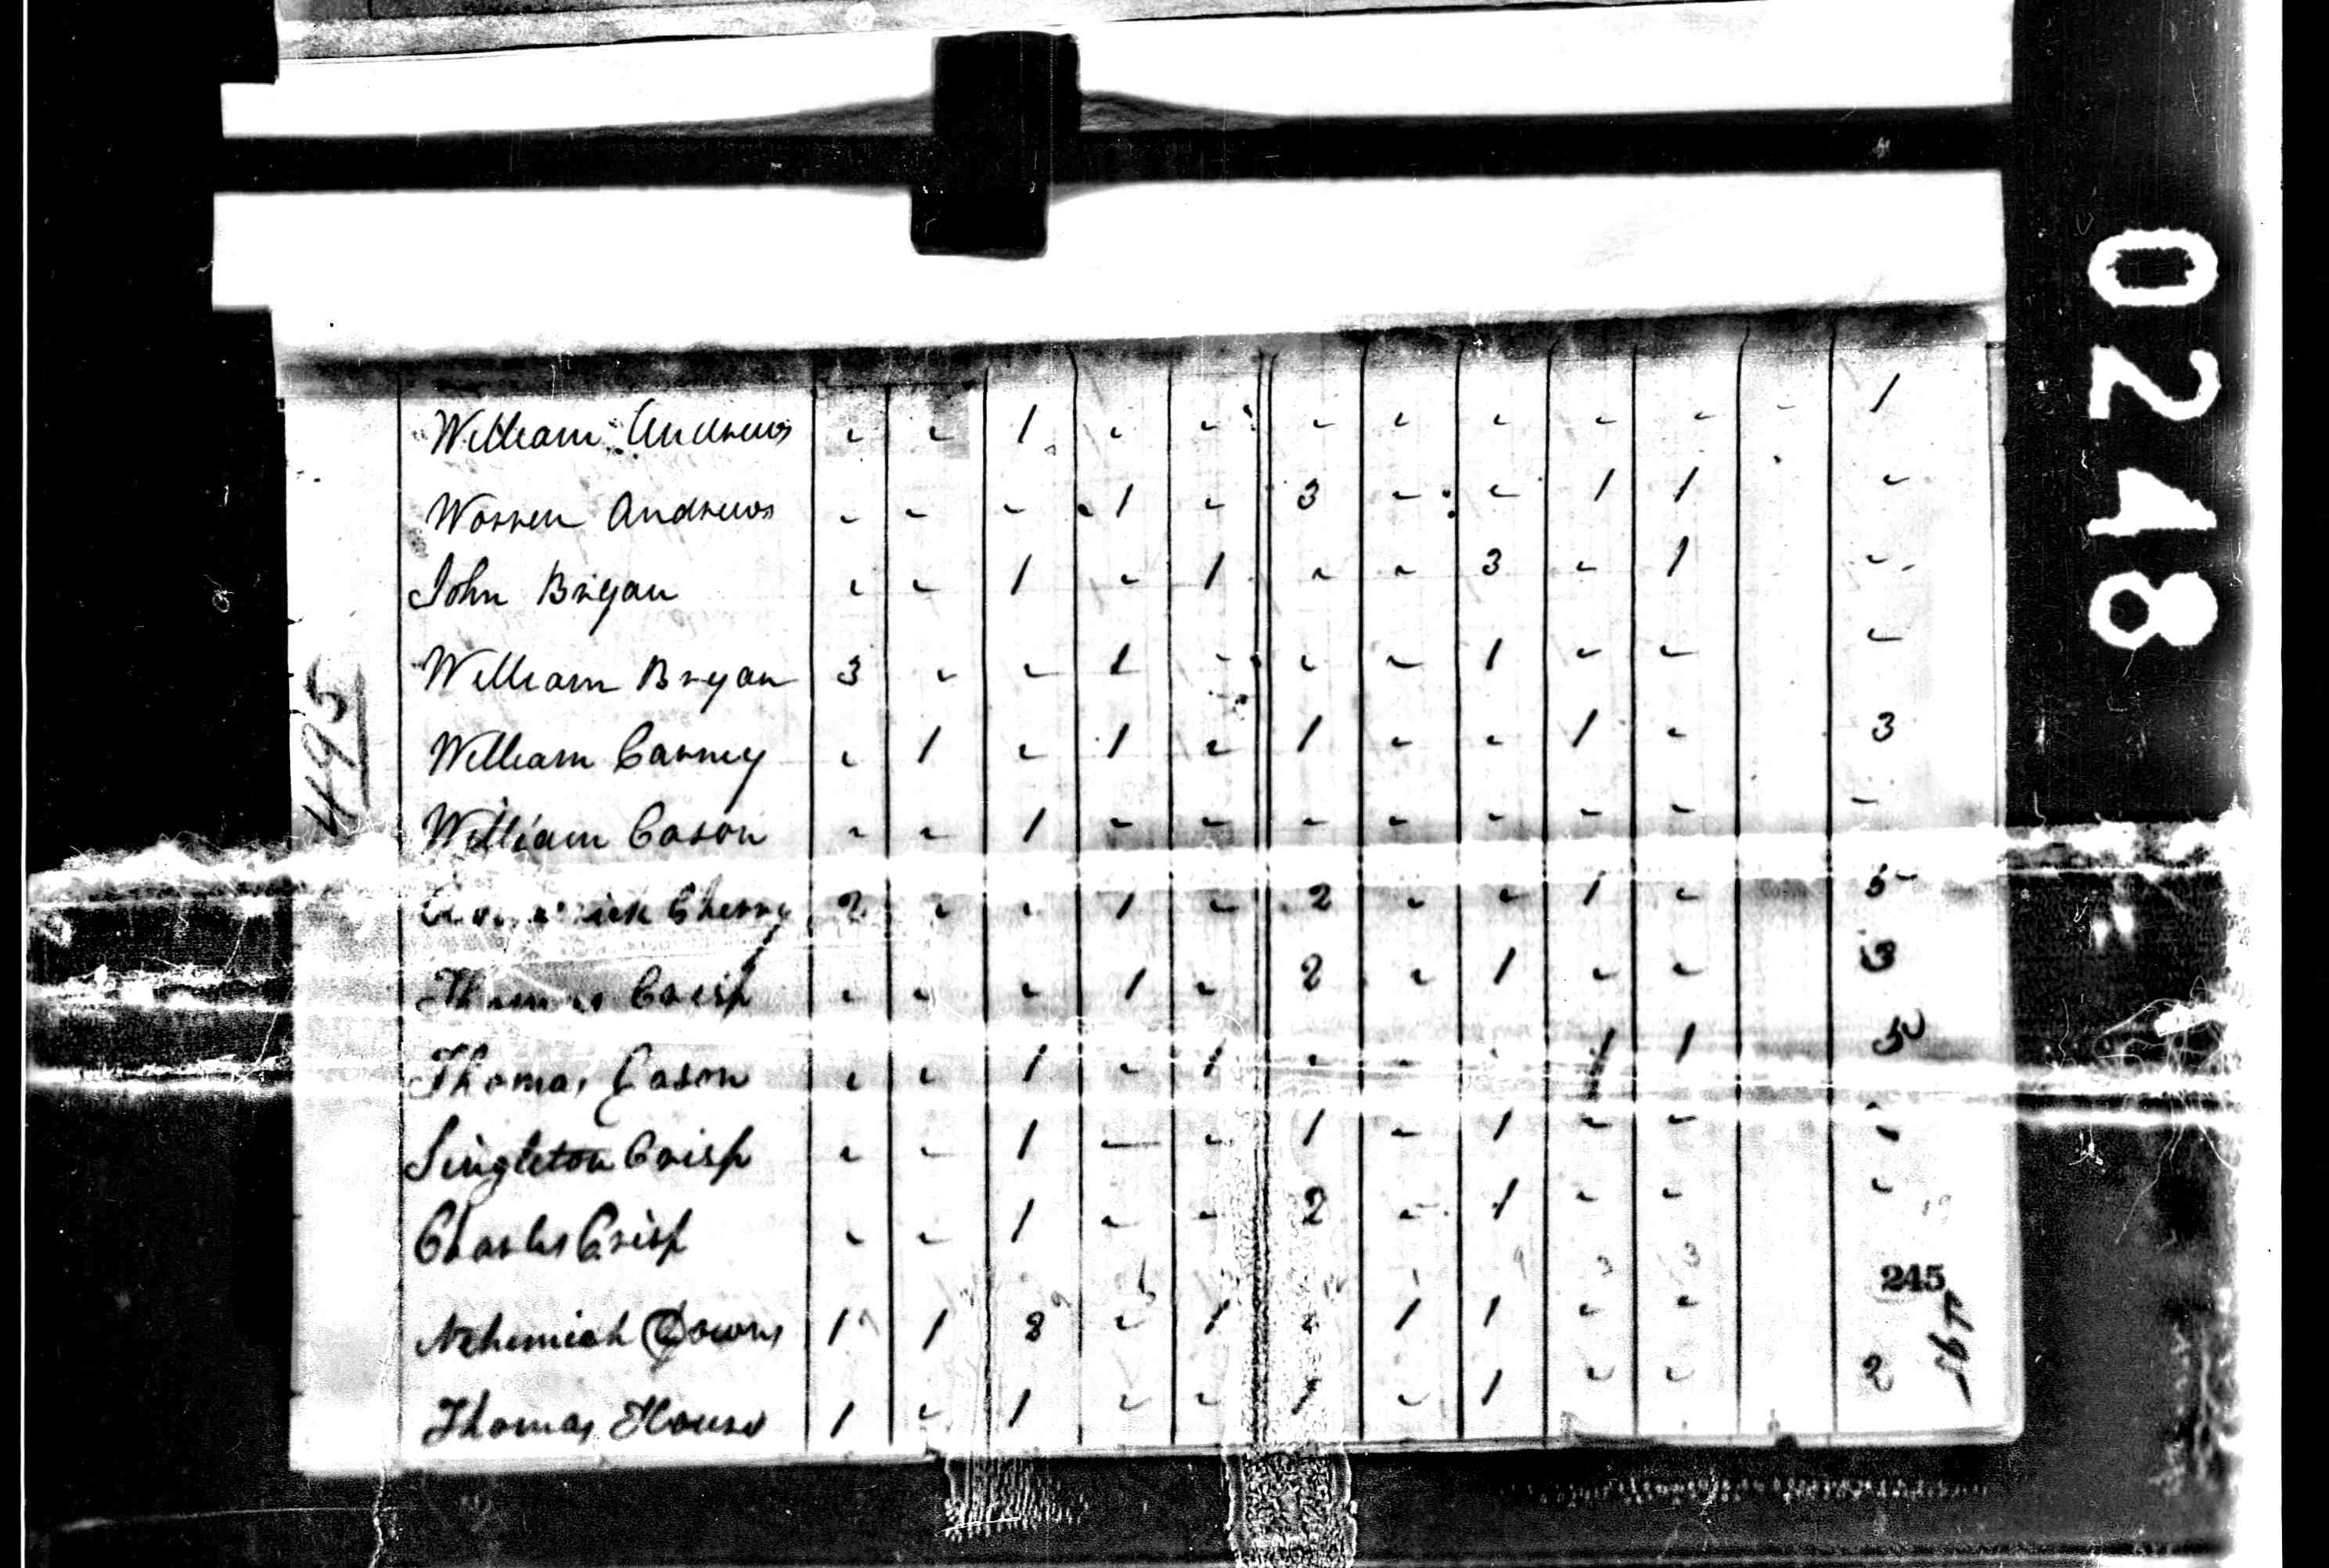 William Andrews - - 1 - - - - - - - - 1
Warren Andrews - - - 1 - 3 - - 1 1 -
John Bryan - - 1 - 1 - - 3 - 1 -
William Bryan 3 - - 1 - - - 1 - - -
William Carney - 1 - 1 - 1 - - 1 - 3
William Cason - - 1 - - - - - - - -
Cherry 2 - - 1 - 2 - - 1 - 5
Thomas Crisp - - - 1 - 2 - 1 - - 3
Thomas Cason - - 1 - 1 - - 1 1 5
Singleton Crisp - - 1 - - 1 - 1 - - -
Charles Crisp - - 1 - - 2 - 1 - - -
Nehemiah Downs 1 1 - 1 - 1 1 - -
Thomas House 1 - 1 - - 1 - 1 - - 2
495
245
0248